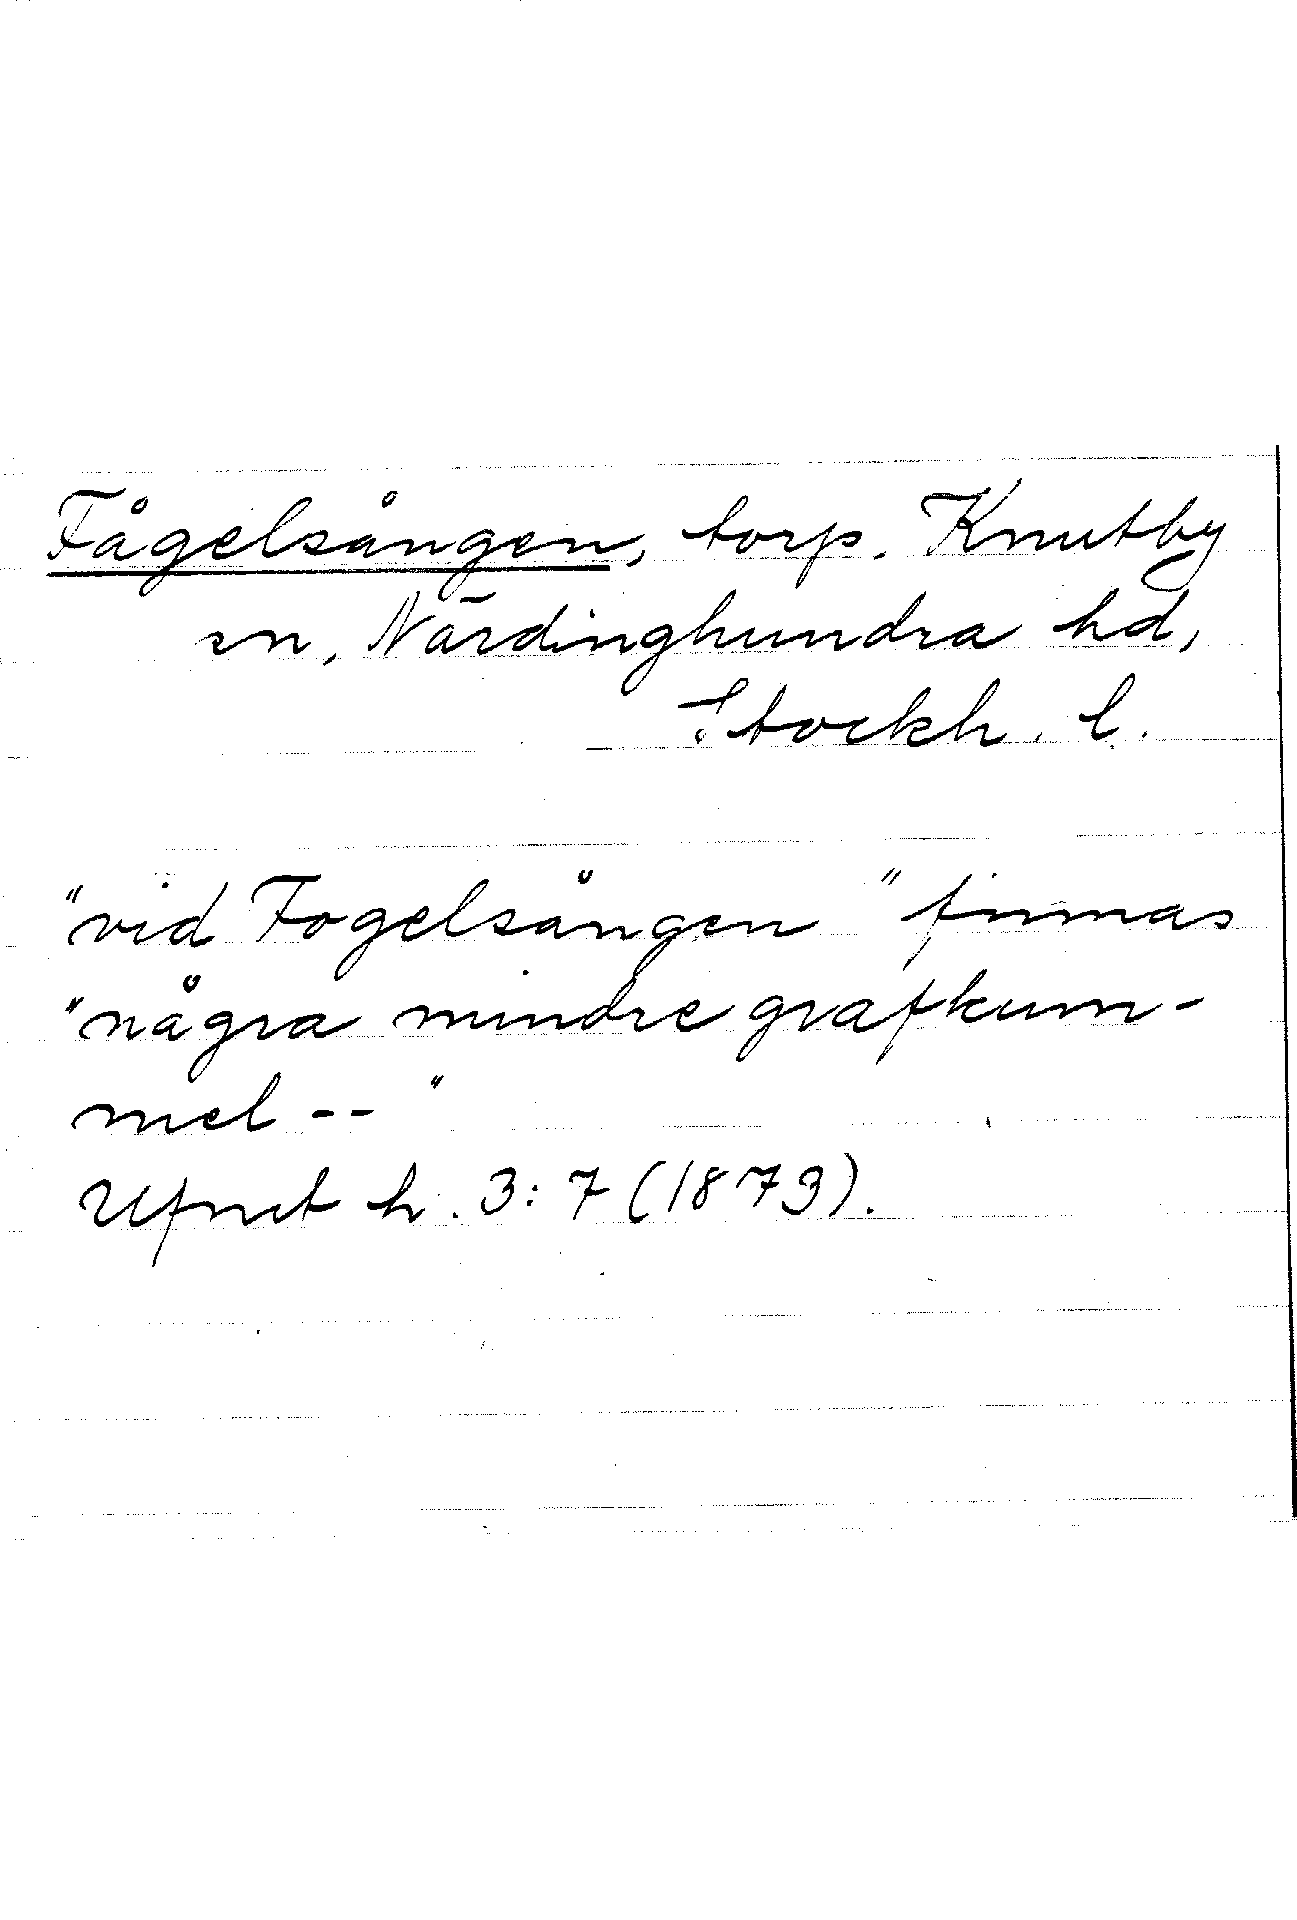 Fågelsången, torp. Knutby
sn, Närdinghundra hd,
Stockh. l.
"vid Fogelsången" finnas
"några mindre grafkum-
mel -- "
Ufmt h. 3:7 (1873).